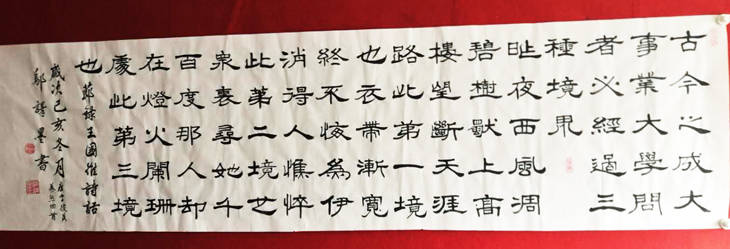 古今之成大
事業大學問
者必經過三
種境界
昨夜西風凋
碧樹獸上高
樓望斷天涯
路此第一境
也衣帶漸寬
終不悔為伊
消得人憔悴
此第二境也
衆裏尋她千
百度那人却
在燈火闌珊
處此第三境
也 節錄王國維詩話
歲次己亥冬月
墨書